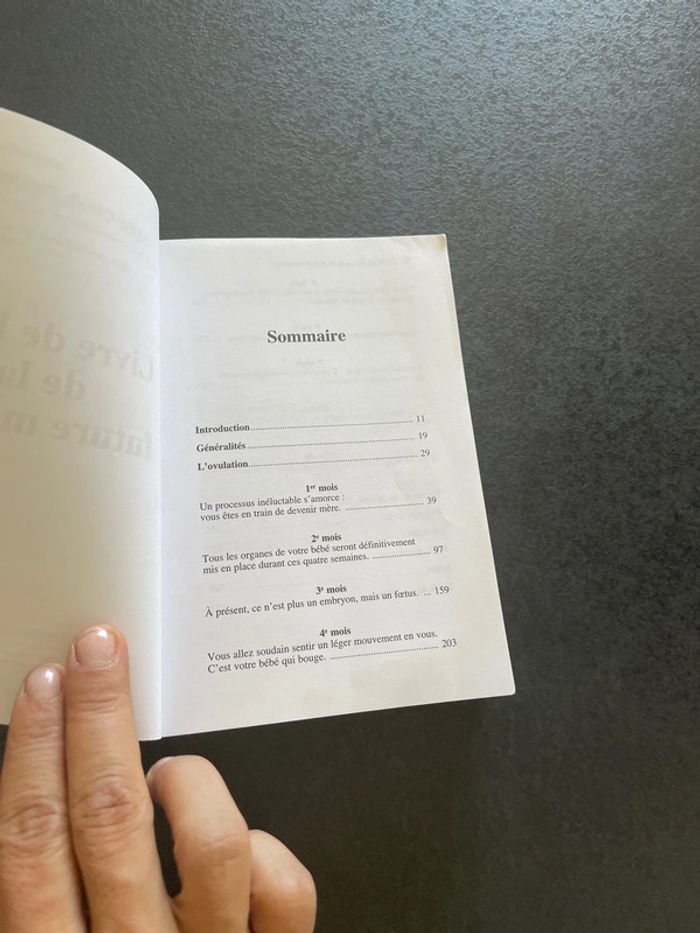 Sommaire
Introduction 11
Généralités 19
L'ovulation 29
1er mois
Un processus inéluctable s'amorce :
vous êtes en train de devenir mère. 39
2e mois
Tous les organes de votre bébé seront définitivement
mis en place durant ces quatre semaines. 97
3e mois
À présent, ce n'est plus un embryon, mais un fœtus. ... 159
4e mois
Vous allez soudain sentir un léger mouvement en vous.
C'est votre bébé qui bouge. 203